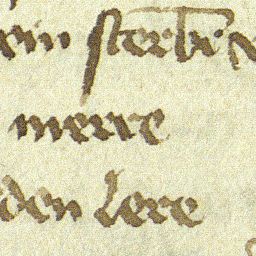 ein sterbē
merre
den lere